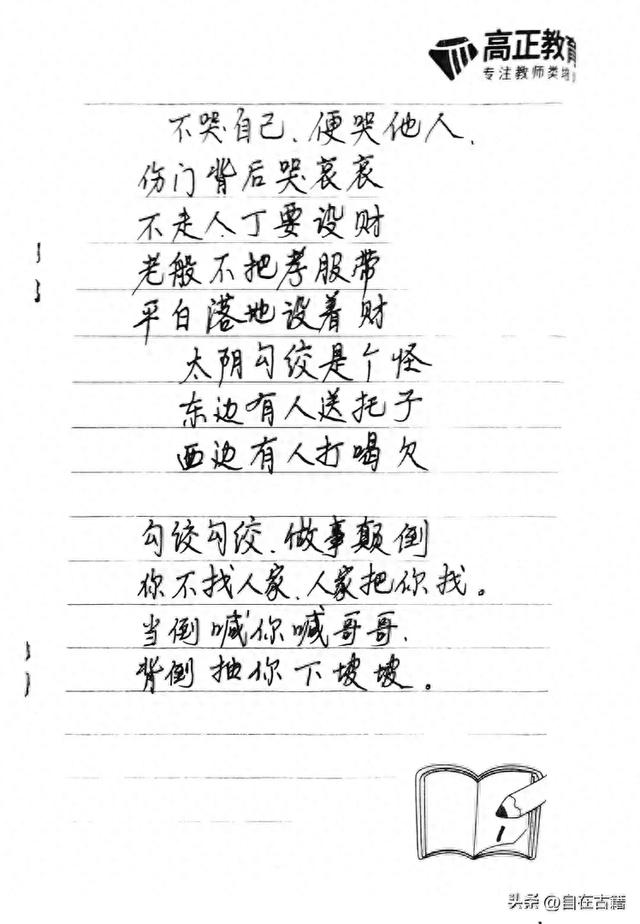 高正教育
专注教师类培
不哭自己、便哭他人、
伤门背后哭哀哀
不走人丁要设财
老般不把孝服带
平白落地设着财
太阴勾绞是个怪
东边有人送托子
西边有人打喝欠
勾绞勾绞、做事颠倒
你不找人家、人家把你找。
当倒喊你喊哥哥、
背倒抽你下坡坡。
头条@自在古籍